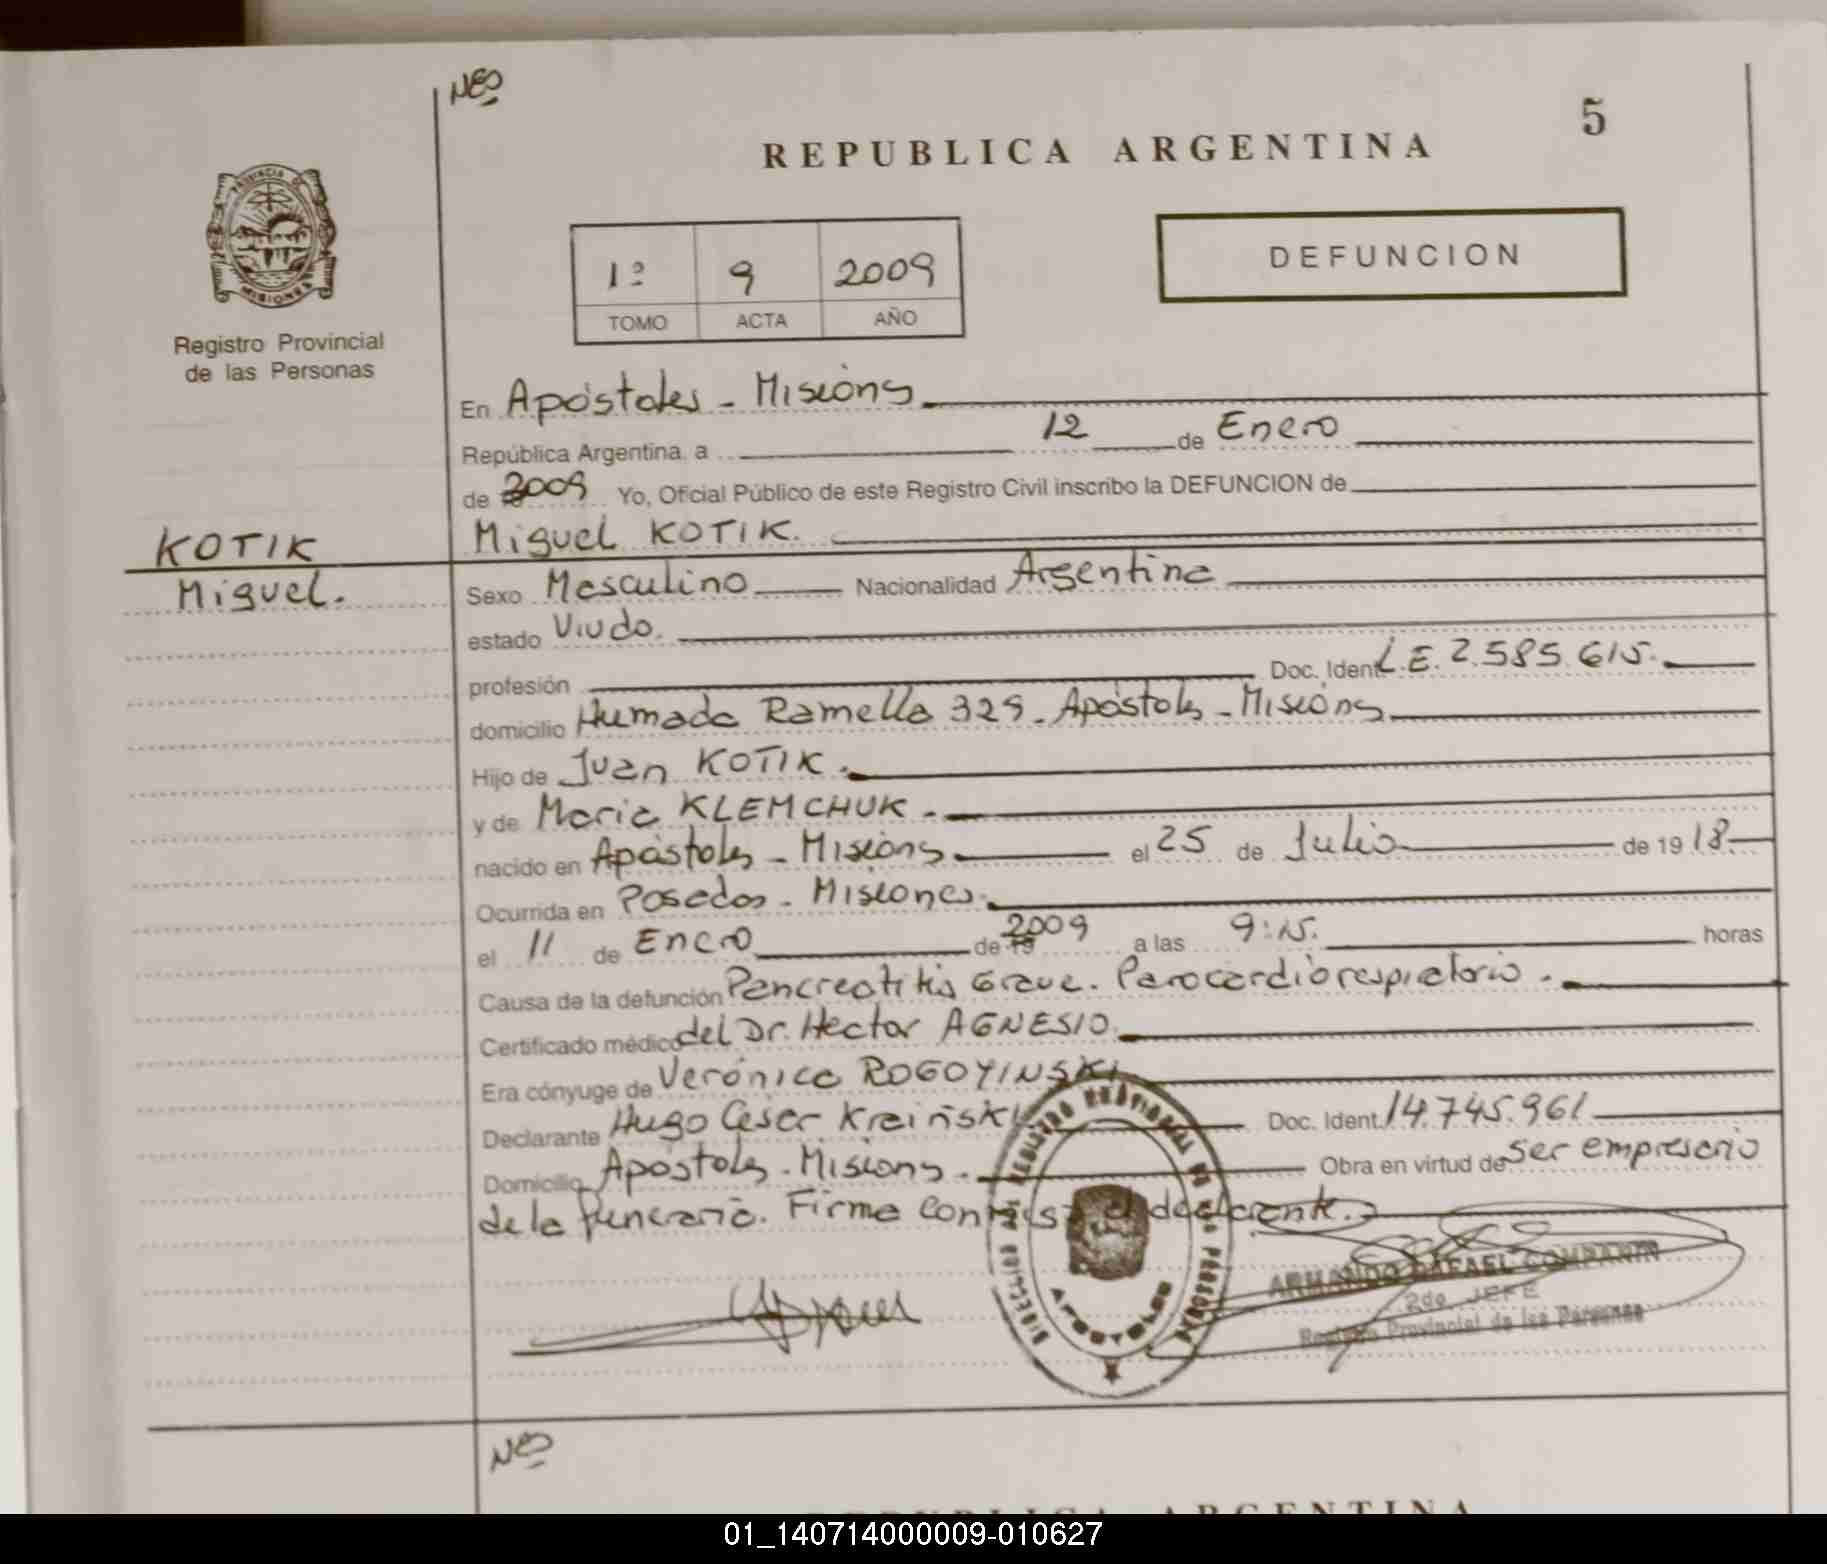 NES
5
REPUBLICA ARGENTINA
PROVINCIA DE
MISIONES
Registro Provincial
de las Personas
1º 9 2009
TOMO ACTA AÑO
DEFUNCION
En Apóstoles - Misiones
República Argentina, a 12 de Enero
de 2009 Yo, Oficial Público de este Registro Civil inscribo la DEFUNCION de
KOTIK Miguel KOTIK.
Miguel. Sexo Masculino Nacionalidad Argentina
estado Viudo.
profesión Doc. Ident. L.E. 2.585.615.
domicilio Humada Ramella 329 - Apóstoles - Misiones
Hijo de Juan KOTIK.
y de Maria KLEMCHUK.
nacido en Apóstoles - Misiones el 25 de Julio de 1918
Ocurrida en Posadas - Misiones.
el 11 de Enero de 19 2009 a las 9:15. horas
Causa de la defunción Pancreatitis Grave. Parocardiorespiratorio.
Certificado médico del Dr. Hector AGNESIO.
Era cónyuge de Verónica ROGOYINSKI
Declarante Hugo César Kraiñski Doc. Ident. 14.745.961
Domicilio Apóstoles - Misiones. Obra en virtud de ser empresario
de la funeraria. Firma conmigo el declarante.
DIRECCION DEL REGISTRO PROVINCIAL DE LAS PERSONAS
APOSTOLES
ARMANDO RAFAEL COMPANIN
2do. JEFE
Registro Provincial de las Personas
NES
REPUBLICA ARGENTINA
01_140714000009-010627